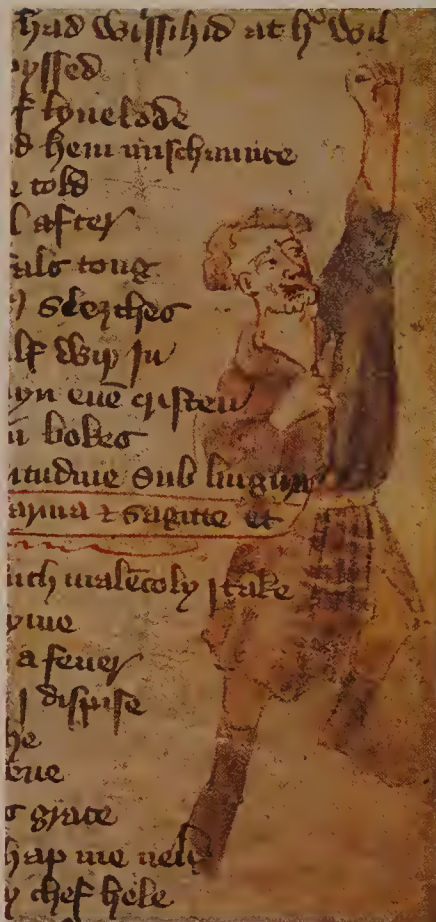 had wisshid at wil
yssed
f lyuelode
d hem mischaunce
e told
l after
fals toug
lf wiþ in
yn euē cristen
n bokes
itudine sub lingua
arma & sagitte et
uch malēcoly I take
yme
a feuer
I dispise
he
leue
s grace
hap me
y chef hele